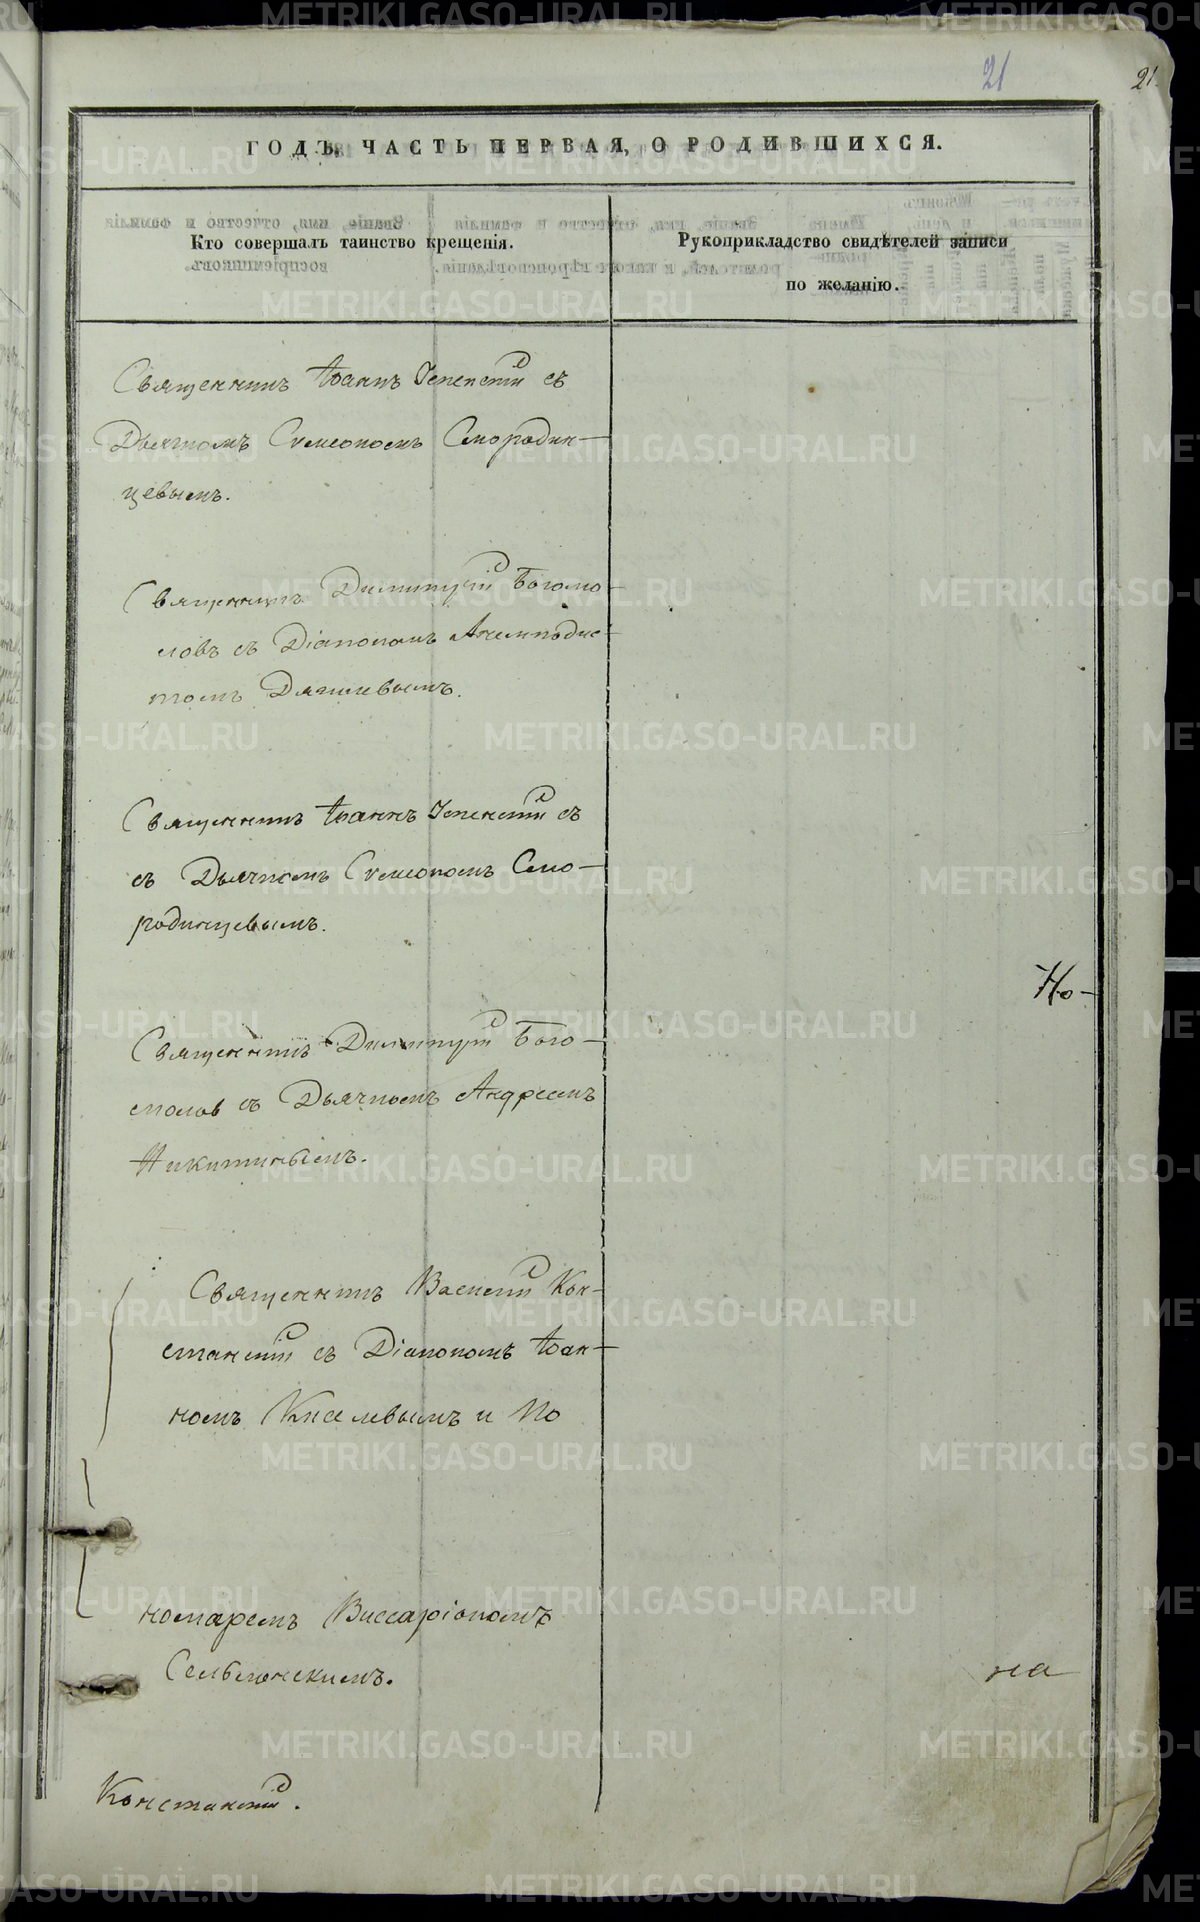 21
21.
ГОДЪ, ЧАСТЬ ПЕРВАЯ, О РОДИВШИХСЯ.
Кто совершалъ таинство крещенія.
Рукоприкладство свидѣтелей записи
по желанію.
Священникъ Іоаннъ с съ
Дьячкомъ Сѵмеономъ Смородин-
цевымъ.
Священникъ Димитрій Богомо-
ловъ съ Діакономъ Аѳемподис-
томъ Дягилевымъ.
Священникъ Іоаннъ съ
съ Дьячкомъ Сѵмеономъ Смо-
родинцевымъ.
Но-
Священникъ Димитрій Бого-
молов съ Дьячкомъ Андреемъ
Никитинымъ.
Священникъ Василій Кон-
станскій съ Діакономъ Іоан-
номъ Киселевымъ и По
номаремъ Виссаріономъ
Сельменскимъ.
на
Констанскій.
METRIKI.GASO-URAL.RU